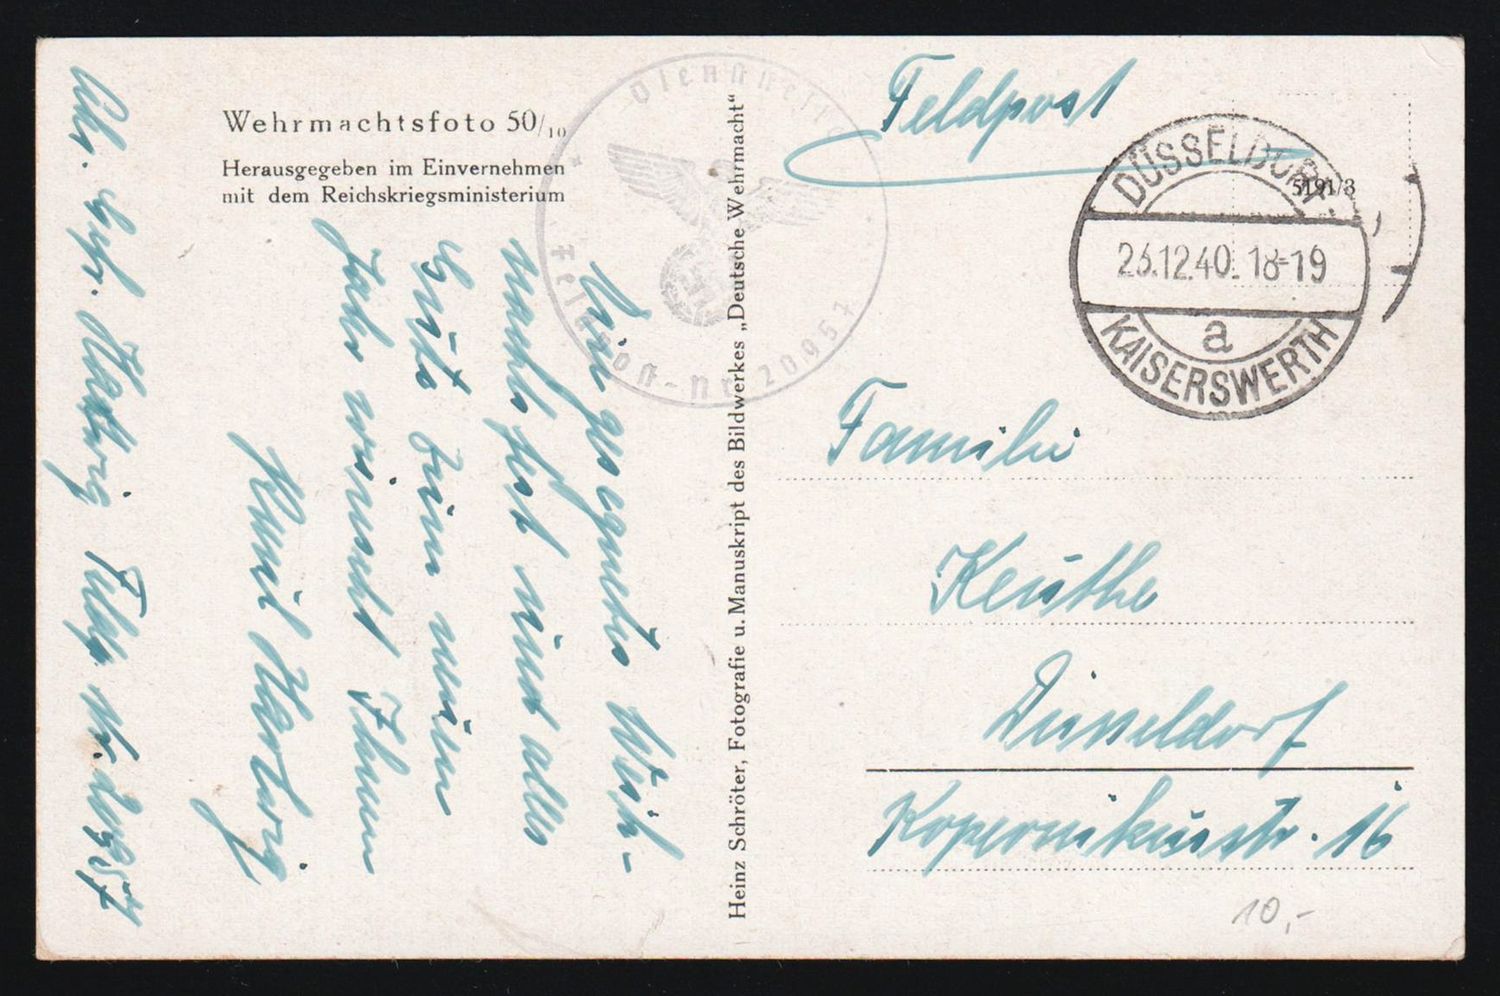 Wehrmachtsfoto 50/10
Herausgegeben im Einvernehmen
mit dem Reichskriegsministerium
Feldpost
5191/3
DÜSSELDORF-
23.12.40.18-19
a
KAISERSWERTH
Dienststelle
Feldpost-Nr. 20957
Familie
Keuthe
Düsseldorf
Kopernikusstr. 16
10,-
Heinz Schröter, Fotografie u. Manuskript des Bildwerkes „Deutsche Wehrmacht“
Ein gesegnetes Weih-
nachtsfest und alles
Gute zum neuen
Jahr wünscht Ihnen
Kunil Hartwig
Abs. Gefr. Hartwig Feldp. Nr. 20957